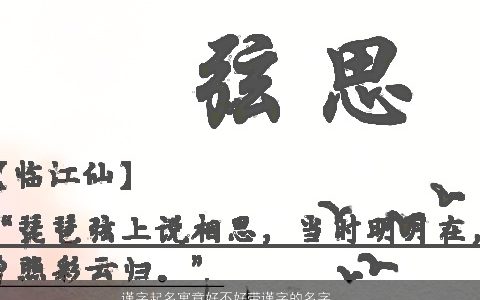 弦思
【临江仙】
“琵琶弦上说相思，当时明月在，
曾照彩云归。”
谨字起名寓意好不好带谨字的名字